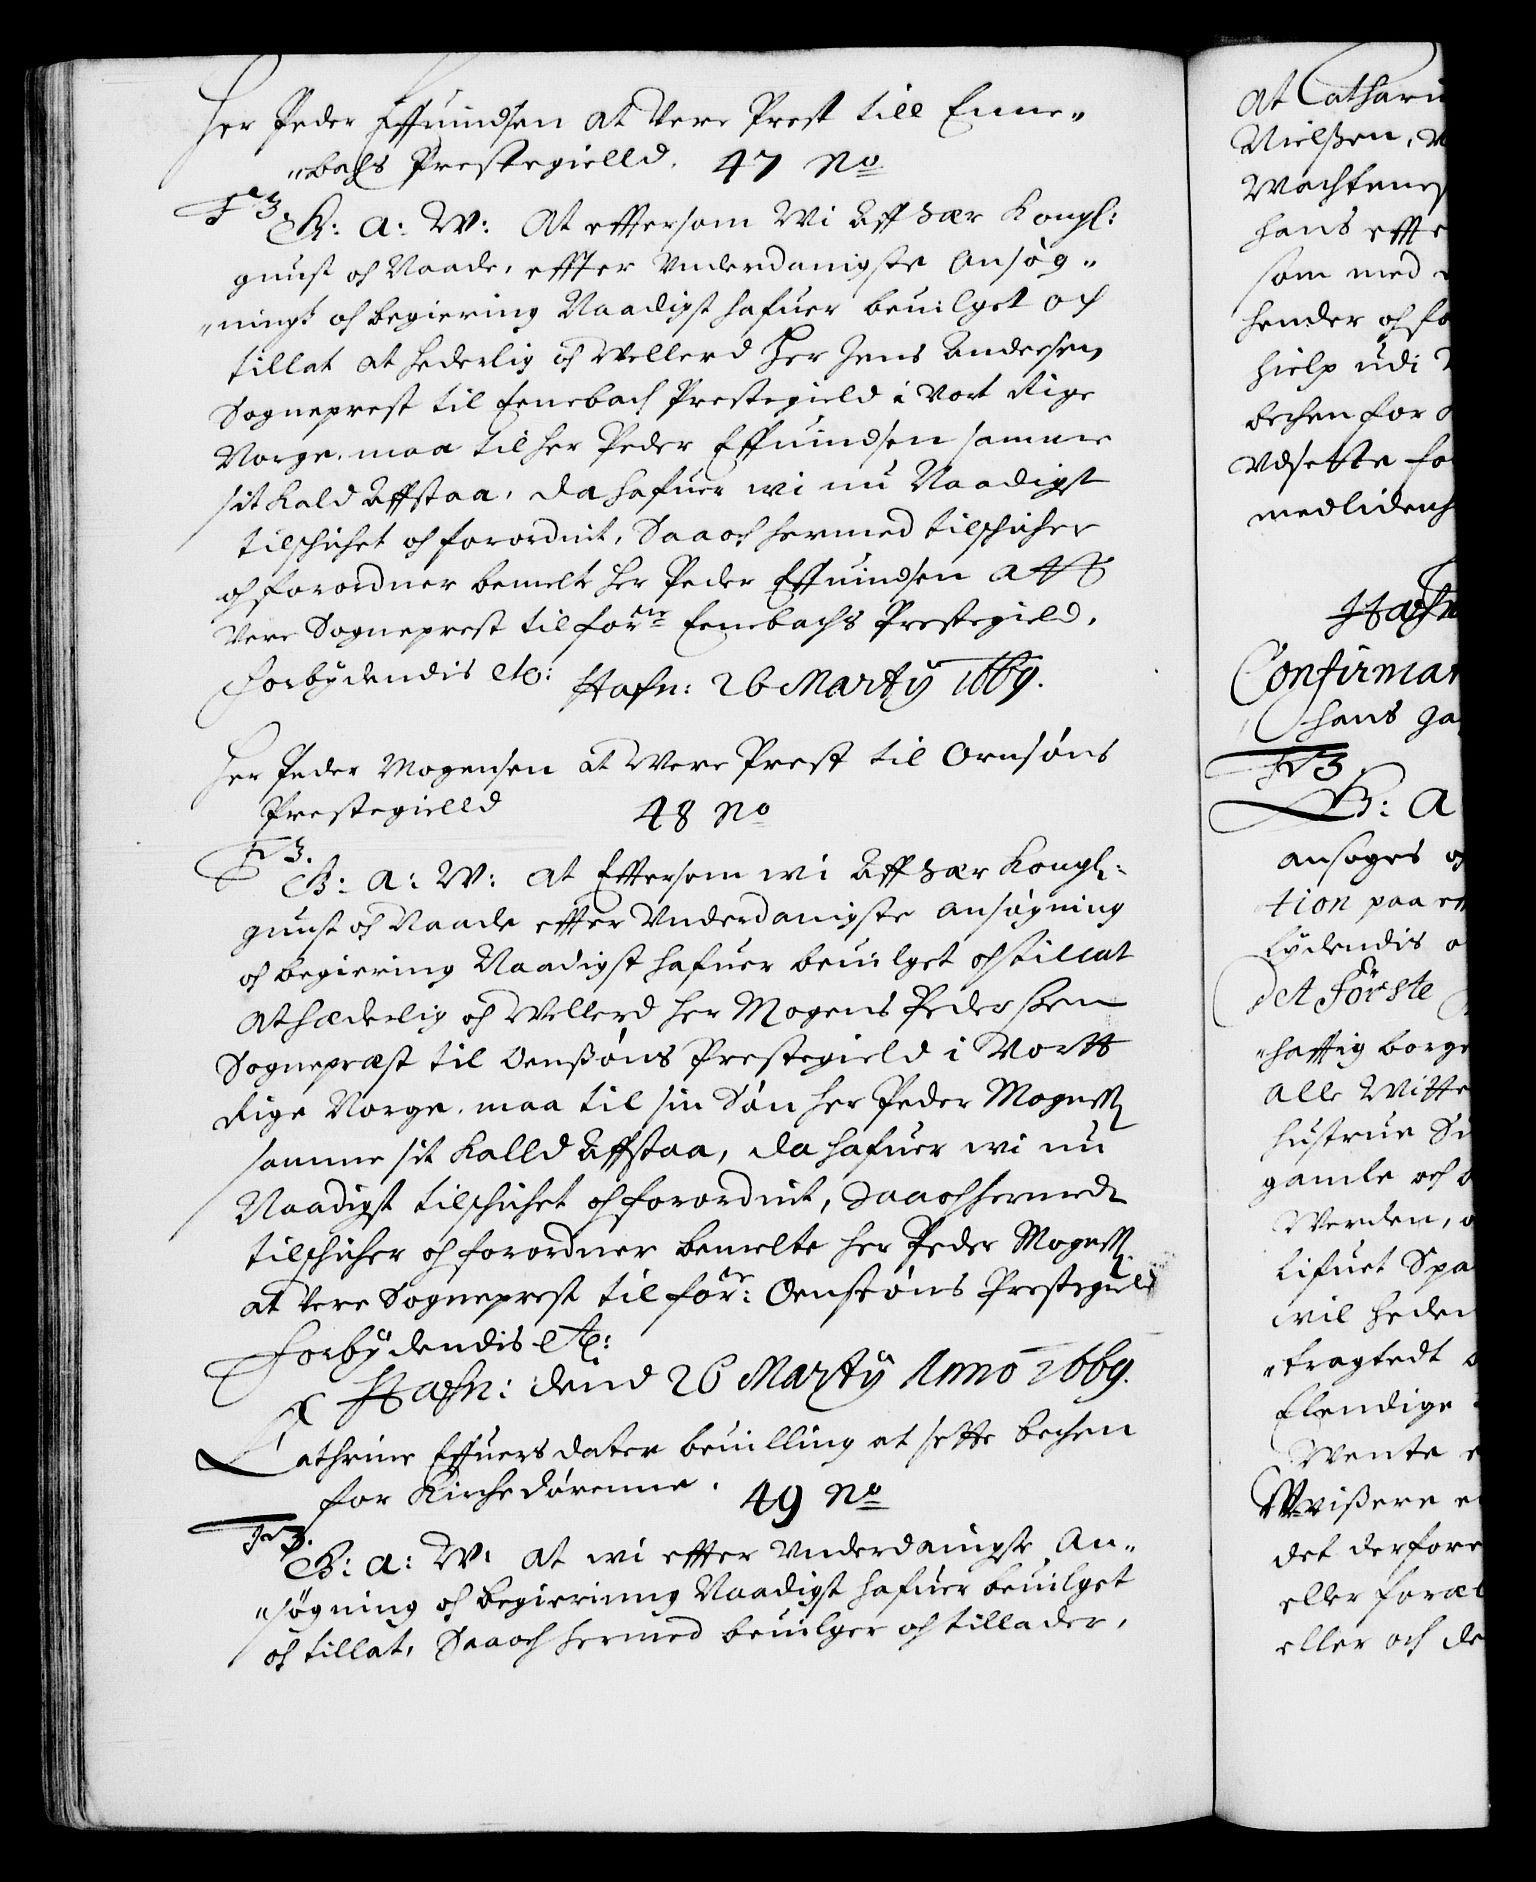 Her Peder Effuindsen at Vere Prest till Enne„
„bachs Prestegielld. 47 No
F 3.
G: A: W: At effersom Wi Aff sær Kongl:
gunst och Naade, effter Vnderdanigste Ansøg„
„ningh och begiering Naadigst hafuer beuilget och
tillat at hederlig och Wellerd Her Jens Andersen
Sogneprest til Enebach Prestegield i Vort Rige
Norge, maa til Her Peder Effuindsen samme
sit Kald Affstaa, da hafuer wi nu Naadigst
tilschichet och forordnit, Saa och hermed tilschicher
och forordner bemelte Her Peder Effuindsen att
Vere Sogneprest til forne Enebachs Prestegield,
Forbydendis etc: Hafn: 26 Martij 1669.
Her Peder Mogensen at Were Prest til Ørnsøns
Prestegielld 48 No
F 3.
G: A: W: At Effersom wi Aff sær Kongl:
gunst och Naade effter Vnderdanigste ansøgning
och begiering Naadigst hafuer beuilget och tillat
at hæderlig och Wellerd Her Mogens Pedersen
Sognepræst til Ørnßøns Prestegield i Vortt
Rige Norge, maa til sin Søn Her Peder Mogenß
samme sit Kalld Affstaa, da hafuer wi nu
Naadigst tilschichet och forordnit, Saa och hermed
tilschicher och forordner bemelte Her Peder Mogenß
at Vere Sogneprest til forne: Ørnsøns Prestegield
Forbydendis etc:
Hafn: dend 26 Martij Anno 1669.
Cathrine Effuersdater beuilling at sette bechen
for Kirchedørenne. 49 No
F 3.
G: A: W: At wi effter Vnderdanigste An„
„søgning och begieringe Naadigst hafuer beuilget
och tillat, Saa och hermed beuilger och tillader,
At Catharin
Nielßen, v
Wachtmes
hans effte
som med
hender och fo
hielp udi
bechen for
Vdsette fo
medlidenh
Hafn
Confirmat
hans ga
F 3
G: A
ansøges och
tion paa
lydendis
Det Förste
„hafftig borge
Alle Witte
hustrue
gamle och b
Werden,
lifuet Spa
wil heden
„fragtedt
Elendige
Wente
Wvißere
det derfore
eller foræl
eller och de